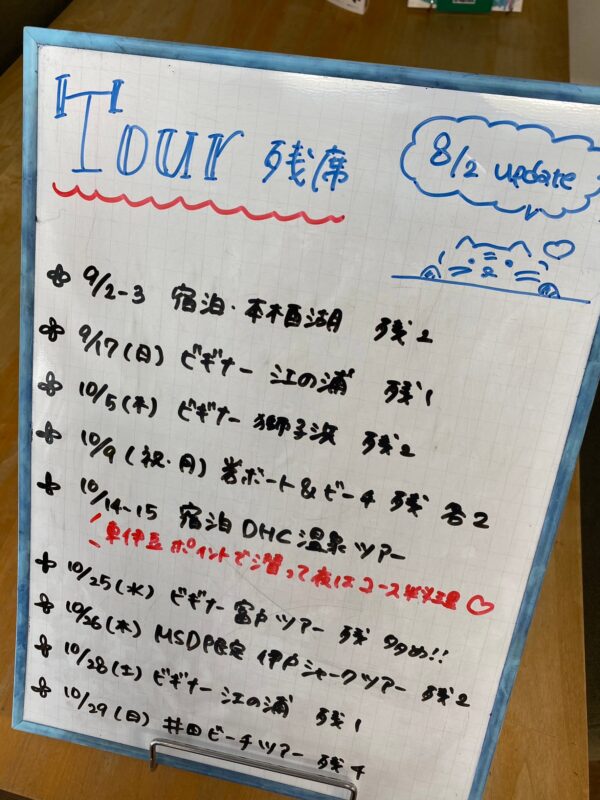 Tour 残席
8/2 update
9/2-3 宿泊・本栖湖 残2
9/17(日) ビギナー 江の浦 残1
10/5(木) ビギナー 獅子浜 残2
10/9(祝・月) 岩ボート&ビーチ 残 各2
10/14-15 宿泊 DHC温泉ツアー
東伊豆 ポイントで潜って夜はコース料理♡
10/25(水) ビギナー 富戸ツアー 残 多め!!
10/26(木) MSD限定 伊戸シャークツアー 残2
10/28(土) ビギナー 江の浦 残1
10/29(日) 井田ビーチツアー 残4